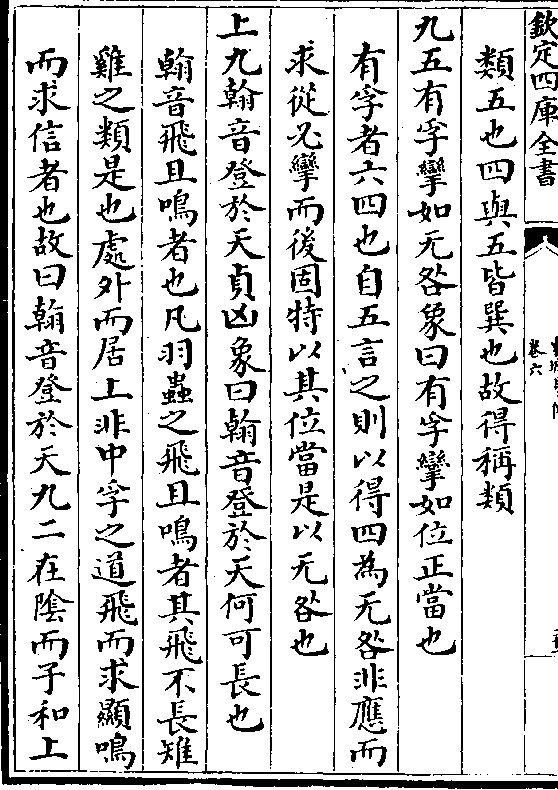 欽定四庫全書
卷六
類五也四與五皆巽也故得稱類
九五有孚攣如无咎象曰有孚攣如位正當也
有孚者六四也自五言之則以得四為无咎非應而
求從必攣而後固特以其位當是以无咎也
上九翰音登於天貞凶象曰翰音登於天何可長也
翰音飛且鳴者也凡羽蟲之飛且鳴者其飛不長雉
雞之類是也處外而居上非中孚之道飛而求顯鳴
而求信者也故曰翰音登於天九二在陰而子和上